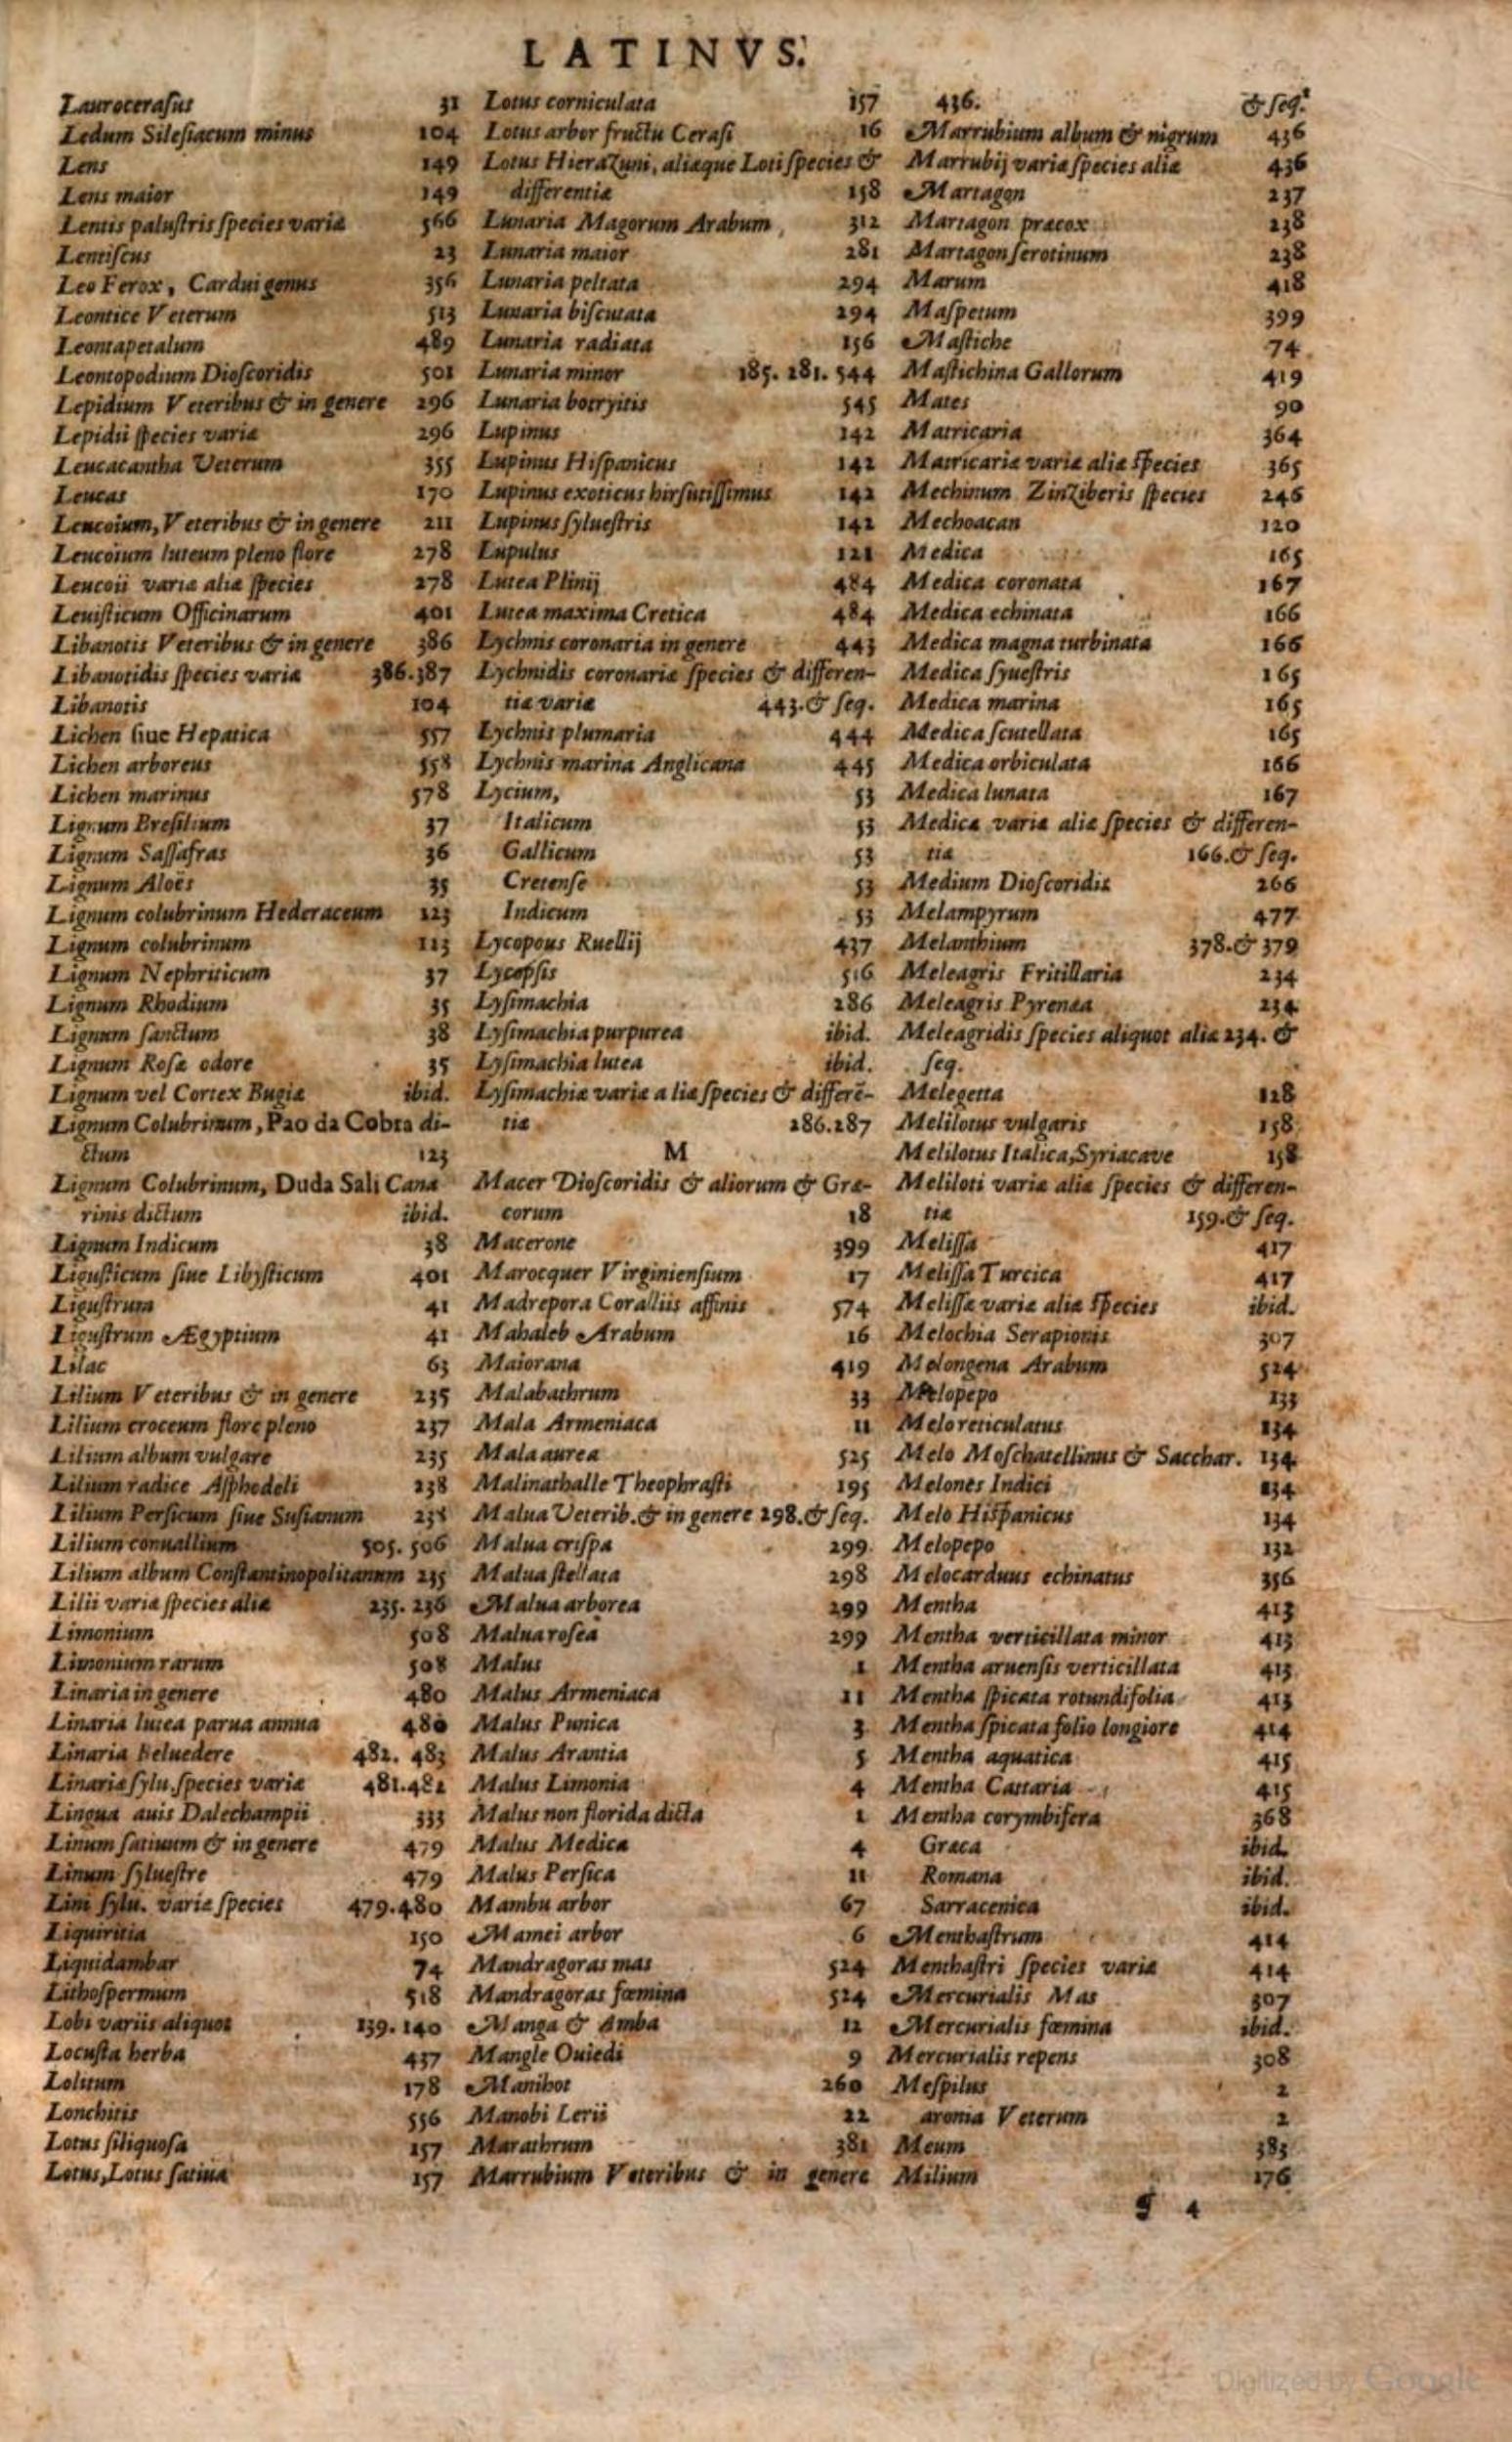 LATINVS.
Laurocerasus 31
Ledum Silesiacum minus 104
Lens 149
Lens maior 149
Lentis palustris species variæ 566
Lentiscus 23
Leo Ferox, Cardui genus 356
Leontice Veterum 513
Leontapetalum 489
Leontopodium Dioscoridis 501
Lepidium Veteribus & in genere 296
Lepidii species variæ 296
Leucacantha Veterum 355
Leucas 170
Leucoium, Veteribus & in genere 211
Leucoium luteum pleno flore 278
Leucoii variæ aliæ species 278
Leuisticum Officinarum 401
Libanotis Veteribus & in genere 386
Libanotidis species variæ 386.387
Libanotis 104
Lichen siue Hepatica 557
Lichen arboreus 558
Lichen marinus 578
Lignum Bresilium 37
Lignum Sassafras 36
Lignum Aloës 35
Lignum colubrinum Hederaceum 123
Lignum colubrinum 113
Lignum Nephriticum 37
Lignum Rhodium 35
Lignum sanctum 38
Lignum Rosæ odore 35
Lignum vel Cortex Bugiæ ibid.
Lignum Colubrinum, Pao da Cobra di-
ctum 123
Lignum Colubrinum, Duda Sali Cana
rinis dictum ibid.
Lignum Indicum 38
Ligusticum siue Libysticum 401
Ligustrum 41
Ligustrum Ægyptium 41
Lilac 63
Lilium Veteribus & in genere 235
Lilium croceum flore pleno 237
Lilium album vulgare 235
Lilium radice Asphodeli 238
Lilium Persicum siue Susianum 238
Lilium conuallium 505. 506
Lilium album Constantinopolitanum 235
Lilii variæ species aliæ 235. 236
Limonium 508
Limonium rarum 508
Linaria in genere 480
Linaria lutea parua annua 480
Linaria Beluedere 482. 483
Linariæ sylu. species variæ 481.482
Lingua auis Dalechampii 333
Linum satiuum & in genere 479
Linum syluestre 479
Lini sylu. variæ species 479.480
Liquiritia 150
Liquidambar 74
Lithospermum 518
Lobi variis aliquot 139. 140
Locusta herba 437
Lolium 178
Lonchitis 556
Lotus siliquosa 157
Lotus, Lotus satiua 157
Lotus corniculata 157
Lotus arbor fructu Cerasi 16
Lotus HieraZuni, aliæque Loti species &
differentiæ 158
Lunaria Magorum Arabum 312
Lunaria maior 281
Lunaria peltata 294
Lunaria biscutata 294
Lunaria radiata 156
Lunaria minor 185. 281. 544
Lunaria botryitis 545
Lupinus 142
Lupinus Hispanicus 142
Lupinus exoticus hirsutissimus 142
Lupinus syluestris 142
Lupulus 121
Lutea Plinij 484
Lutea maxima Cretica 484
Lychnis coronaria in genere 443
Lychnidis coronariæ species & differen-
tiæ variæ 443.& seq.
Lychnis plumaria 444
Lychnis marina Anglicana 445
Lycium, 53
Italicum 53
Gallicum 53
Cretense 53
Indicum 53
Lycopous Ruellij 437
Lycopsis 516
Lysimachia 286
Lysimachia purpurea ibid.
Lysimachia lutea ibid.
Lysimachiæ variæ aliæ species & differē-
tiæ 286.287
M
Macer Dioscoridis & aliorum & Græ-
corum 18
Macerone 399
Marocquer Virginiensium 17
Madrepora Coralliis affinis 574
Mahaleb Arabum 16
Maiorana 419
Malabathrum 33
Mala Armeniaca 11
Mala aurea 525
Malinathalle Theophrasti 195
Malua Veterib.& in genere 298.& seq.
Malua crispa 299
Malua stellata 298
Malua arborea 299
Malua rosea 299
Malus 1
Malus Armeniaca 11
Malus Punica 3
Malus Arantia 5
Malus Limonia 4
Malus non florida dicta 1
Malus Medica 4
Malus Persica 11
Mambu arbor 67
Mamei arbor 6
Mandragoras mas 524
Mandragoras fœmina 524
Manga & Amba 12
Mangle Ouiedi 9
Manihot 260
Manobi Lerii 22
Marathrum 381
Marrubium Veteribus & in genere
436. & seq.
Marrubium album & nigrum 436
Marrubij variæ species aliæ 436
Martagon 237
Martagon præcox 238
Martagon serotinum 238
Marum 418
Maspetum 399
Mastiche 74
Mastichina Gallorum 419
Mates 90
Matricaria 364
Matricariæ variæ aliæ species 365
Mechinum ZinZiberis species 246
Mechoacan 120
Medica 165
Medica coronata 167
Medica echinata 166
Medica magna turbinata 166
Medica syuestris 165
Medica marina 165
Medica scutellata 165
Medica orbiculata 166
Medica lunata 167
Medicæ variæ aliæ species & differen-
tiæ 166.& seq.
Medium Dioscoridis 266
Melampyrum 477
Melanthium 378.& 379
Meleagris Fritillaria 234
Meleagris Pyrenæa 234
Meleagridis species aliquot aliæ 234. &
seq.
Melegetta 128
Melilotus vulgaris 158
Melilotus Italica, Syriacave 158
Meliloti variæ aliæ species & differen-
tiæ 159.& seq.
Melissa 417
Melissa Turcica 417
Melissæ variæ aliæ species ibid.
Melochia Serapionis 307
Melongena Arabum 524
Melopepo 133
Melo reticulatus 134
Melo Moschatellinus & Sacchar. 134
Melones Indici 134
Melo Hispanicus 134
Melopepo 132
Melocarduus echinatus 356
Mentha 413
Mentha verticillata minor 413
Mentha aruensis verticillata 413
Mentha spicata rotundifolia 413
Mentha spicata folio longiore 414
Mentha aquatica 415
Mentha Cattaria 415
Mentha corymbifera 368
Græca ibid.
Romana ibid.
Sarracenica ibid.
Menthastrum 414
Menthastri species variæ 414
Mercurialis Mas 307
Mercurialis fœmina ibid.
Mercurialis repens 308
Mespilus 2
aronia Veterum 2
Meum 383
Milium 176
¶ 4
Digitized by Google